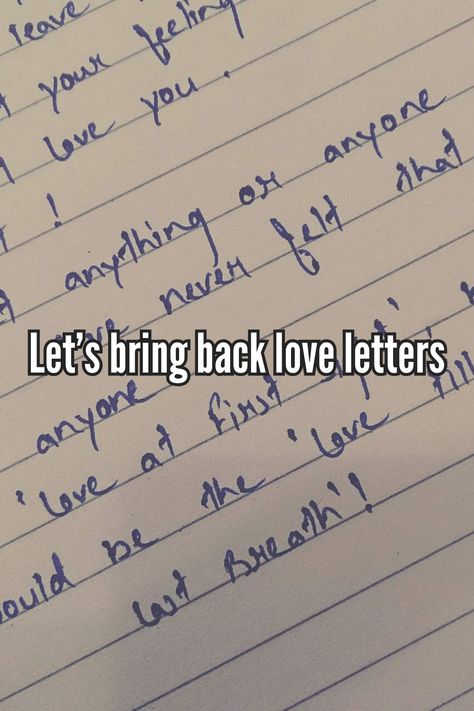 leave
your feeling
love you.
!
anything or anyone
never felt that
Let's bring back love letters
anyone
'love at first
ould be the 'love till
last Breath'!